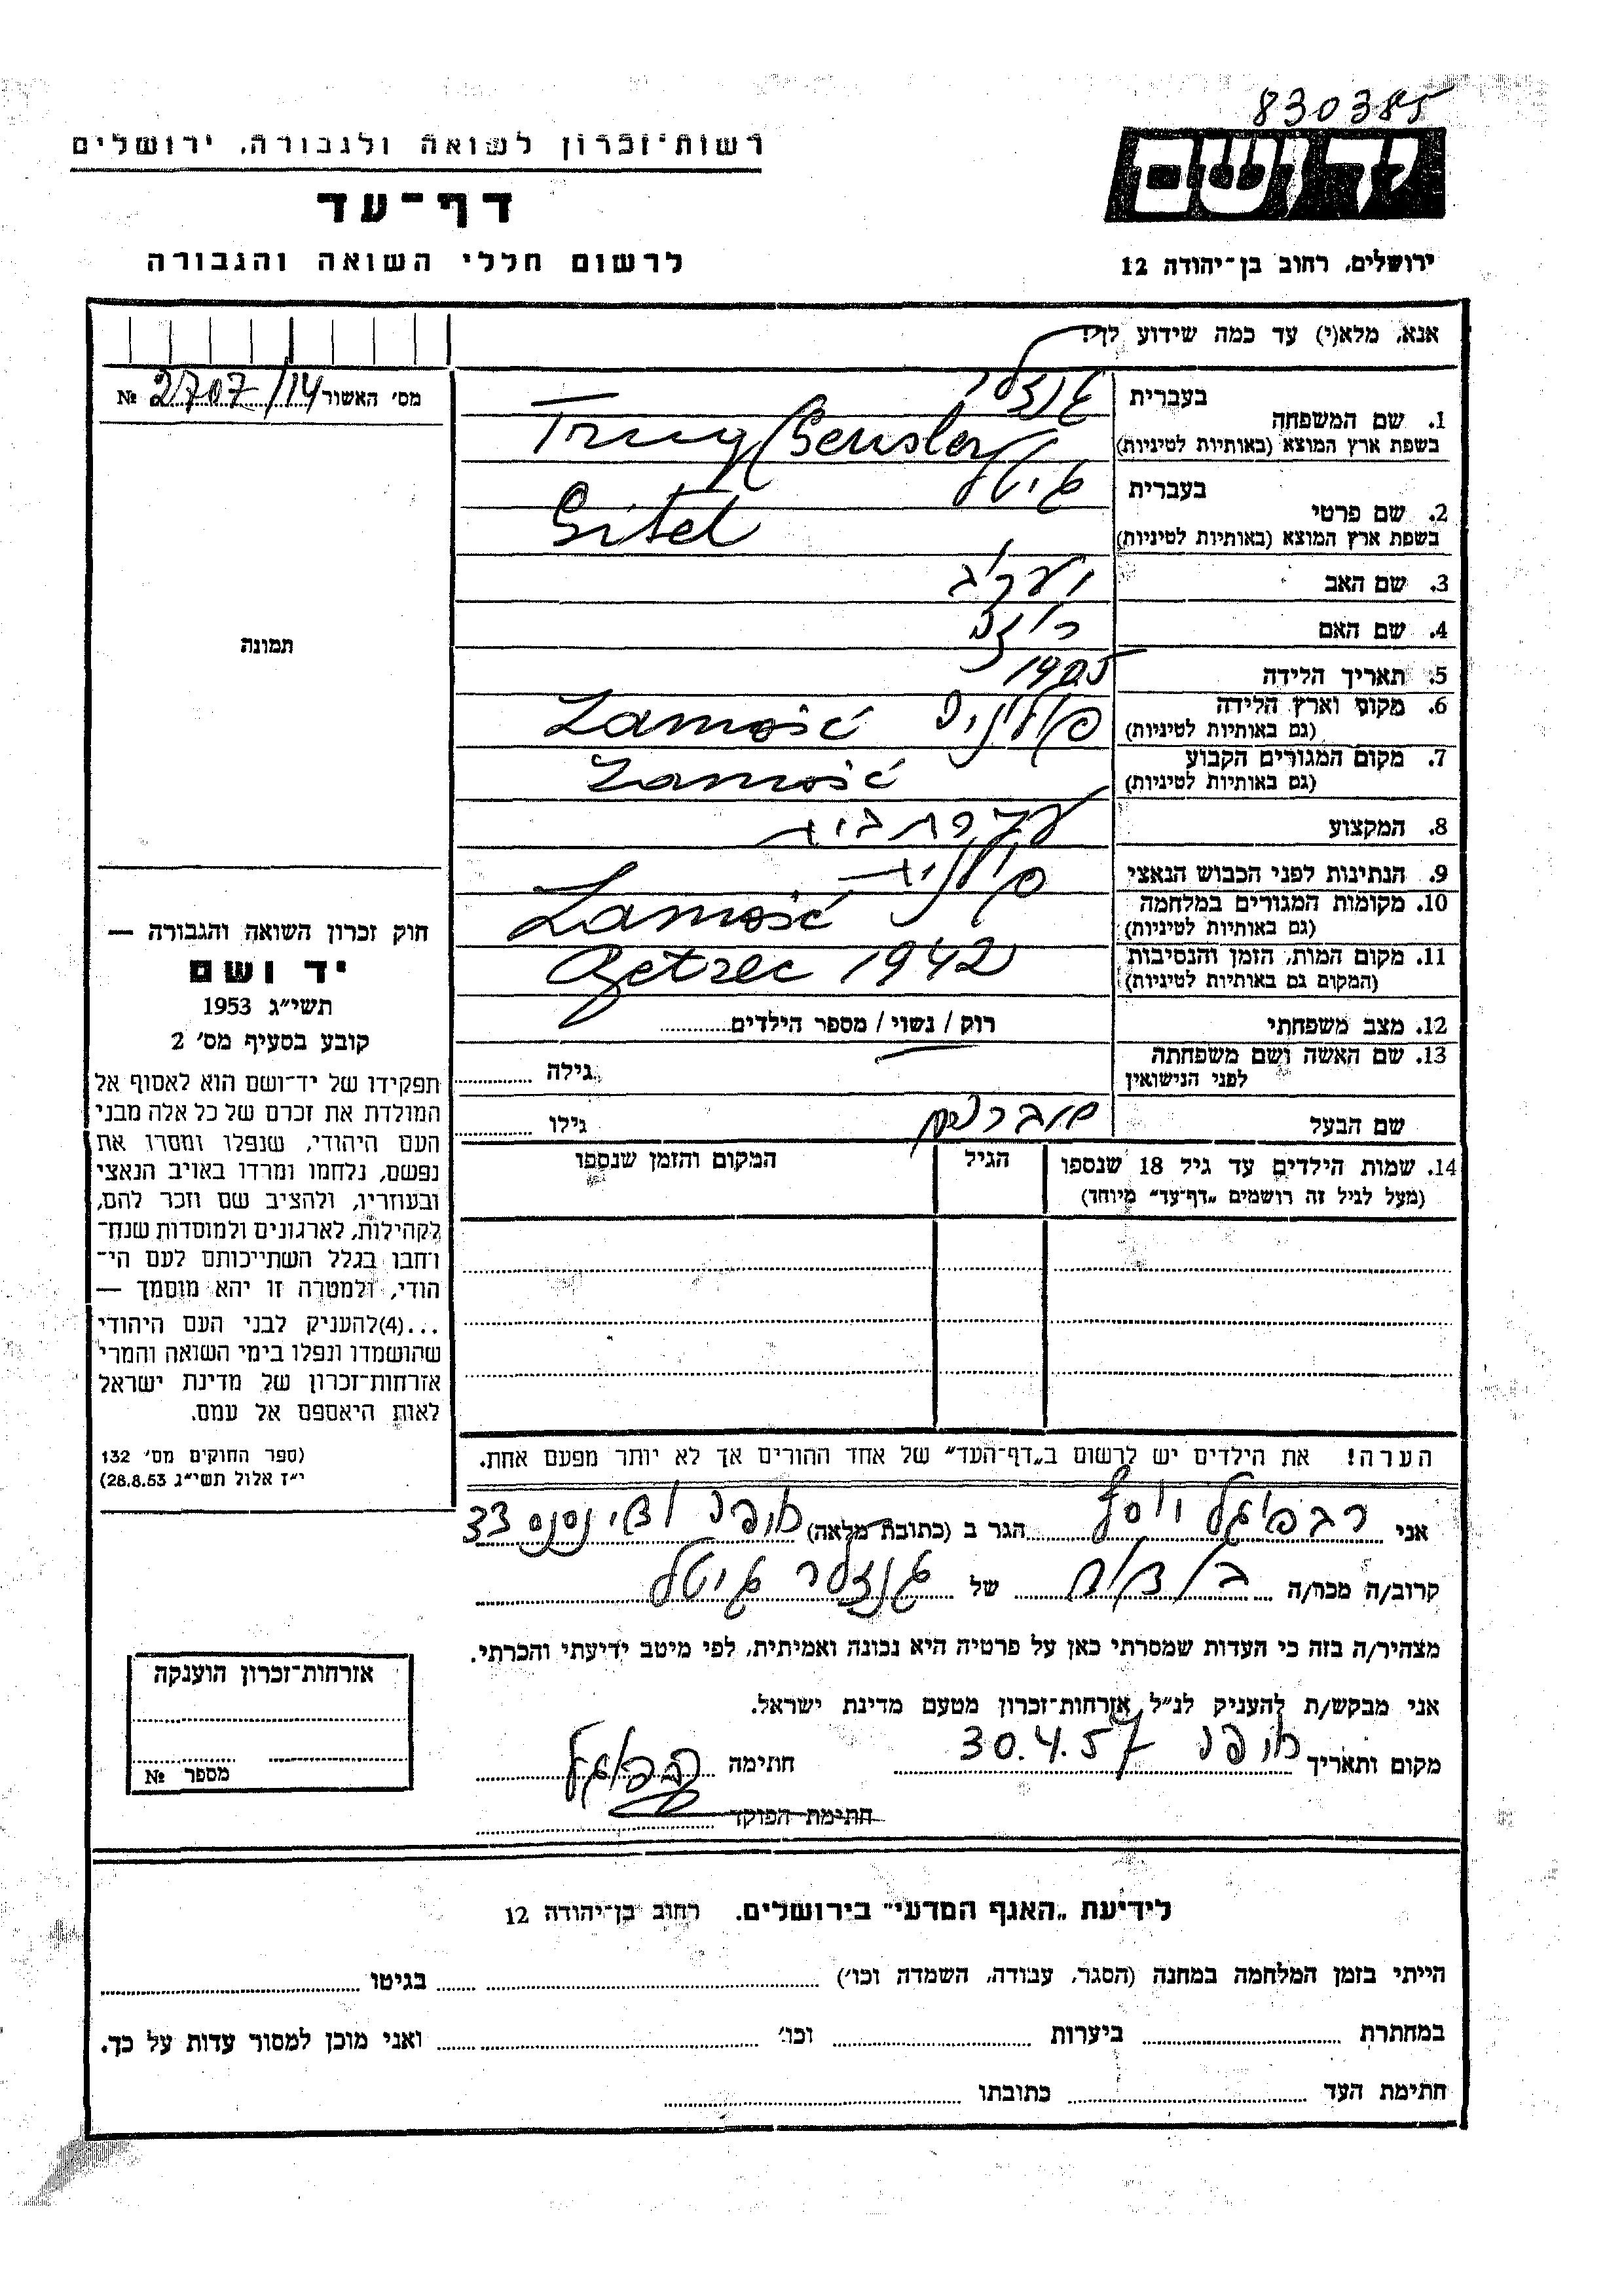 830385
יד ושם
רשות־זכרון לשואה ולגבורה, ירושלים
דף־עד
לרשום חללי השואה והגבורה
ירושלים, רחוב בן־יהודה 12
אנא, מלא(י) עד כמה שידוע לך!
מס׳ האשור 2707/14 №
תמונה
1. שם המשפחה
בעברית גנזלר
בשפת ארץ המוצא (באותיות לטיניות) Gensler
2. שם פרטי
בעברית גיטל
בשפת ארץ המוצא (באותיות לטיניות) Gitel
3. שם האב יעקב
4. שם האם
5. תאריך הלידה 1905
6. מקום וארץ הלידה פולניה Zamość
(גם באותיות לטיניות)
7. מקום המגורים הקבוע Zamość
(גם באותיות לטיניות)
8. המקצוע עקרת בית
9. הנתינות לפני הכבוש הנאצי פולנית
10. מקומות המגורים במלחמה Zamość
(גם באותיות לטיניות)
11. מקום המות, הזמן והנסיבות 1942
(המקום גם באותיות לטיניות)
12. מצב משפחתי רוק / נשוי / מספר הילדים
13. שם האשה ושם משפחתה גילה
לפני הנישואין
שם הבעל גילו
14. שמות הילדים עד גיל 18 שנספו הגיל המקום והזמן שנספו
(מעל לגיל זה רושמים „דף־עד״ מיוחד)
הערה! את הילדים יש לרשום ב„דף־העד״ של אחד ההורים אך לא יותר מפעם אחת.
חוק זכרון השואה והגבורה —
יד ושם
תשי״ג 1953
קובע בסעיף מס׳ 2
תפקידו של יד־ושם הוא לאסוף אל
המולדת את זכרם של כל אלה מבני
העם היהודי, שנפלו ומסרו את
נפשם, נלחמו ומרדו באויב הנאצי
ובעוזריו, ולהציב שם וזכר להם,
לקהילות, לארגונים ולמוסדות שנח־
רחבו בגלל השתייכותם לעם הי־
הודי, ולמטרה זו יהא מוסמך —
...(4)להעניק לבני העם היהודי
שהושמדו ונפלו בימי השואה והמרי
אזרחות־זכרון של מדינת ישראל
לאות היאספם אל עמם.
(ספר החוקים מס׳ 132
י״ז אלול תשי״ג 28.8.53)
אני יוסף הגר ב (כתובת מלאה) חיפה 33
קרוב/ה מכר/ה בן דוד של גנזלר גיטל
מצהיר/ה בזה כי העדות שמסרתי כאן על פרטיה היא נכונה ואמיתית, לפי מיטב ידיעתי והכרתי.
אני מבקש/ת להעניק לנ״ל אזרחות־זכרון מטעם מדינת ישראל.
מקום ותאריך חיפה 30.4.57 חתימה
חתימת הפוקד
אזרחות־זכרון הוענקה
מספר №
לידיעת „האגף המדעי״ בירושלים. רחוב בן־יהודה 12
הייתי בזמן המלחמה במחנה (הסגר, עבודה, השמדה וכו׳) בגיטו
במחתרת ביערות וכו׳ ואני מוכן למסור עדות על כך.
חתימת העד כתובתו